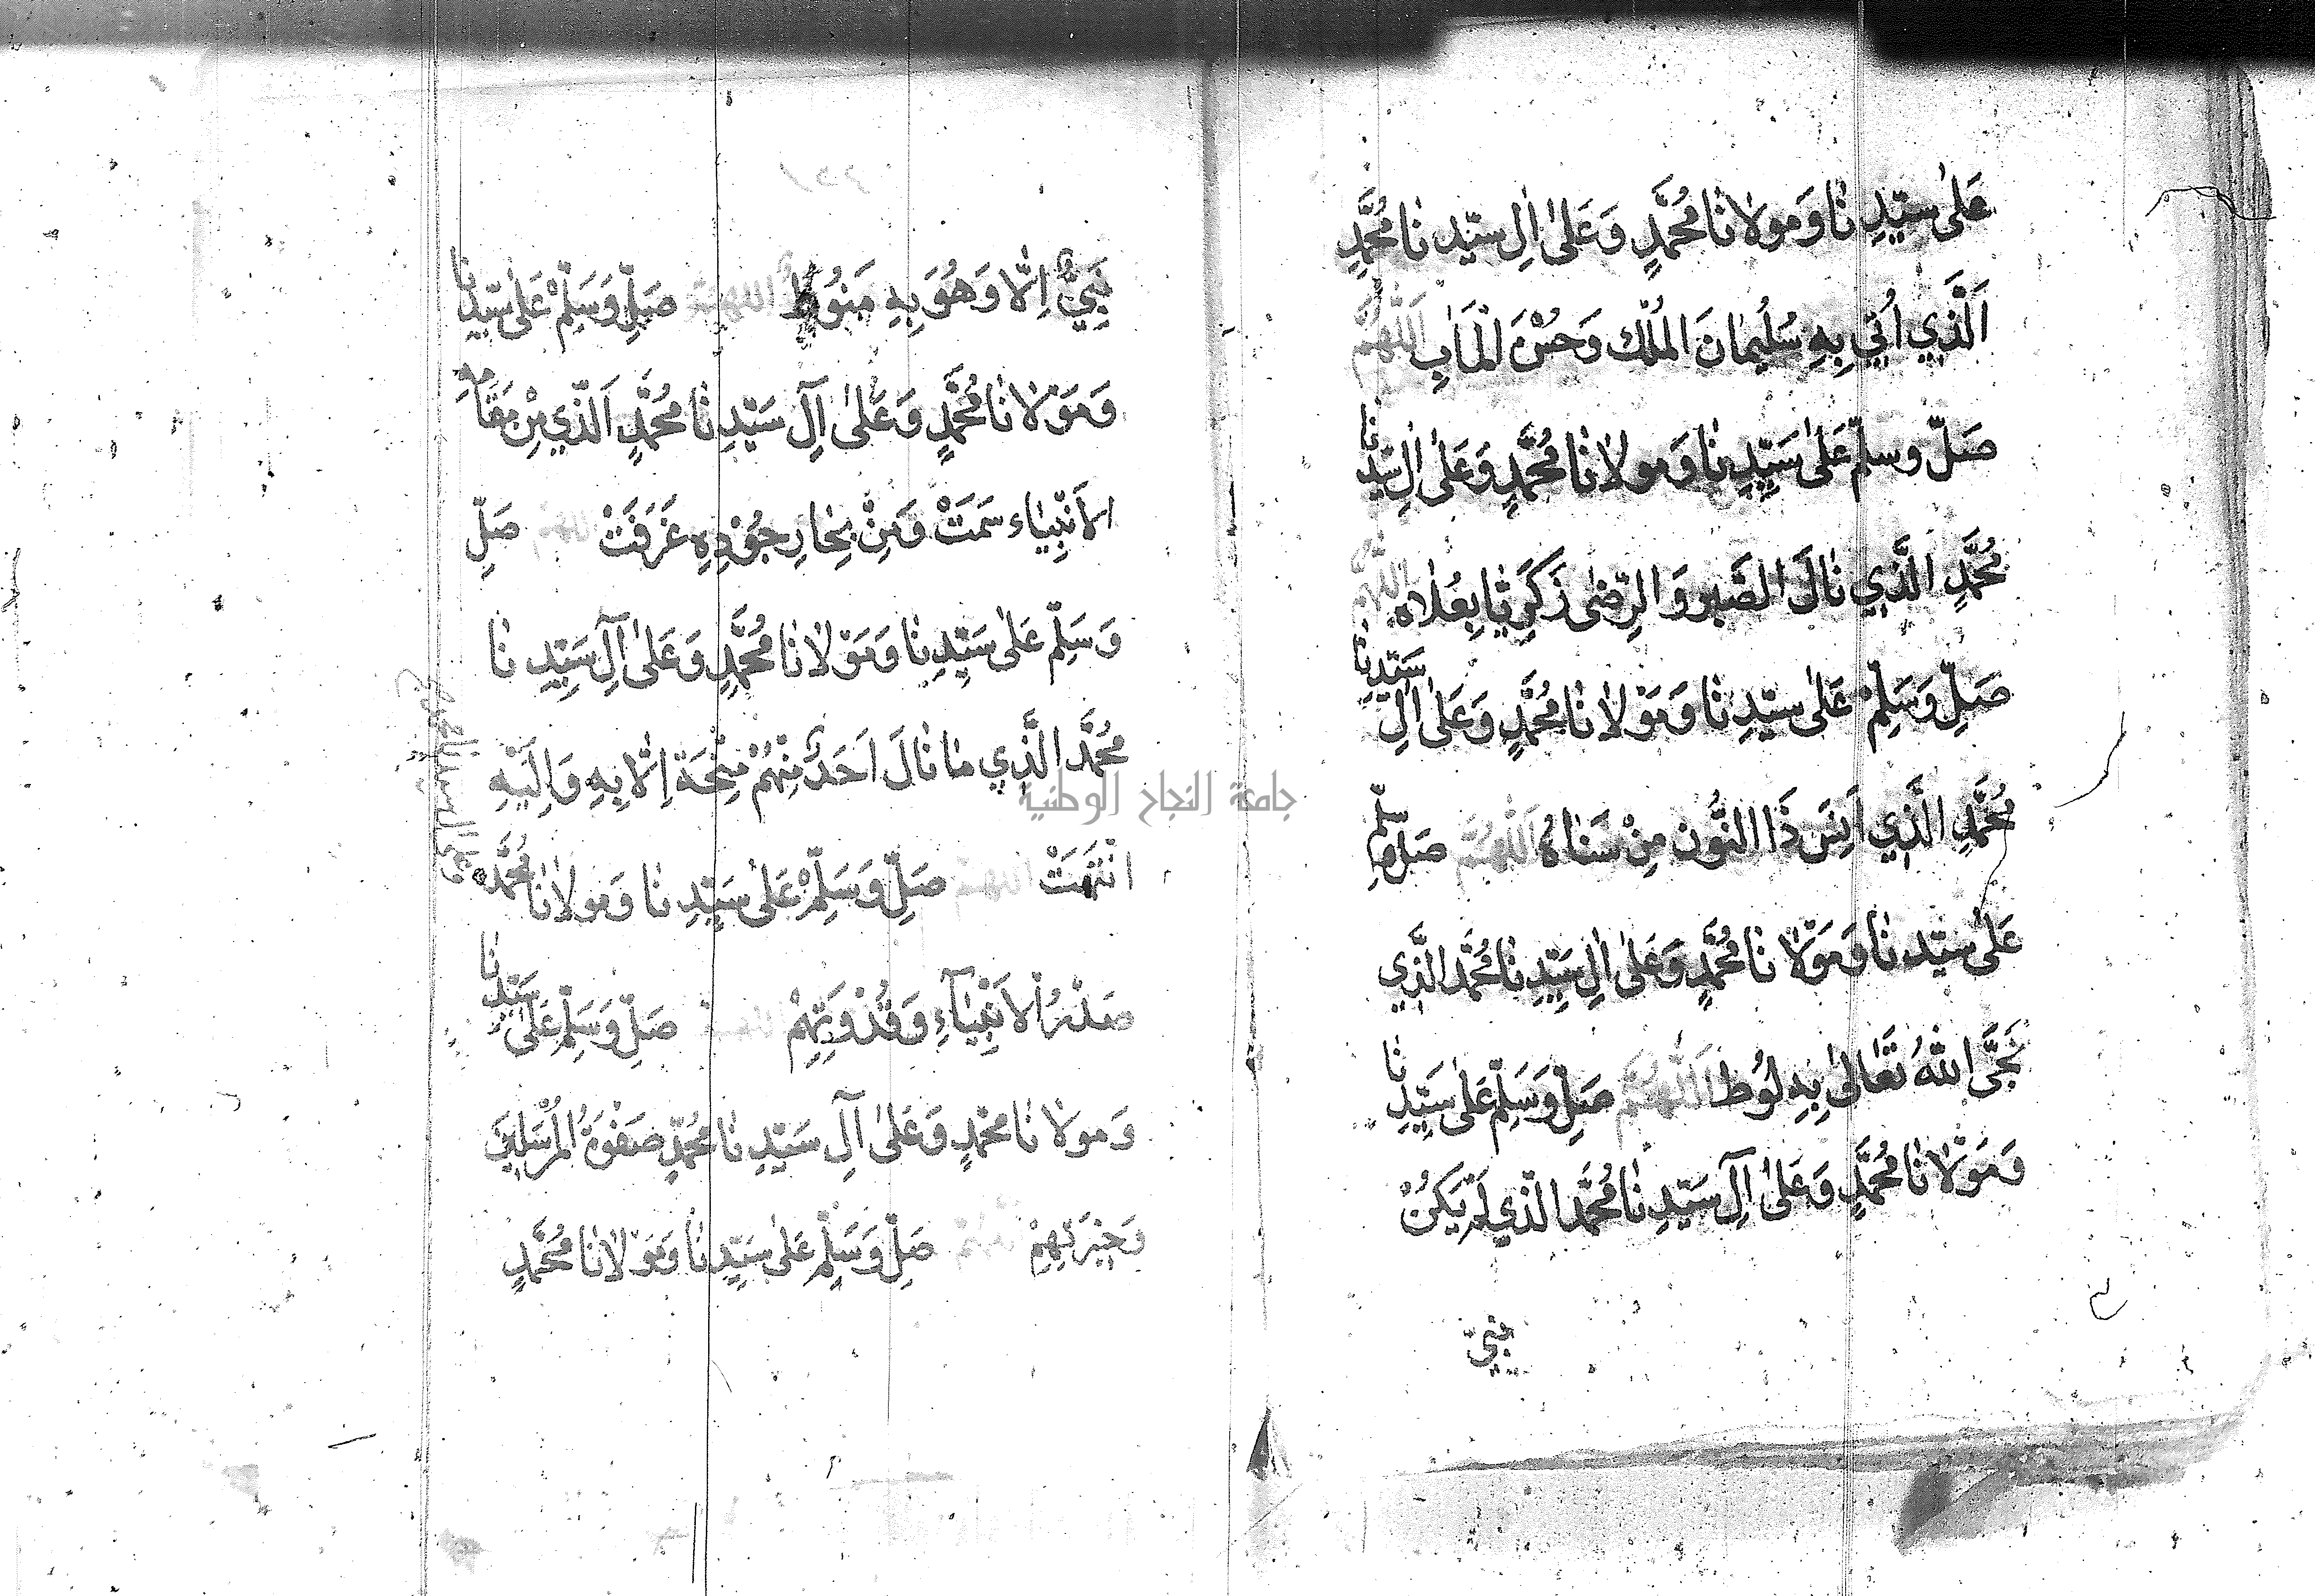 عَلىٰ سيّدِنٰا وَمولانٰا مُحَمَّدٍ وَعَلىٰ اٰلِ سيّدنٰا مُحَمَّدٍ
اَلَّذِي اُتِي بِهِ سُلَيمانَ المُلْك وَحُسْنَ الْمَاٰبِ اَللّٰهُمَّ
صَلِّ وسلّم عَلىٰ سَيّدِنٰا وَمولانٰا مُحَمَّدٍ وَعَلىٰ اٰلِ سَيّدِنٰا
مُحَمَّدٍ الَّذِي نٰالَ الصَّبر وَالرِّضىٰ زَكَرِيّٰا بِعُلاه اللّٰهم
صَلِّ وَسَلِّمْ عَلىٰ سيّدِنٰا وَمَوْلانٰا مُحَمَّدٍ وَعَلىٰ اٰلِ سَيّدِنٰا
مُحَمَّدٍ الَّذِي اَنِسَ ذَا النُّون مِنْ سَنٰاهُ اَللّٰهُمَّ صَلِّ وسلّم
عَلىٰ سيّدنٰا وَمَوْلانٰا مُحَمَّدٍ وَعَلىٰ اٰلِ سَيِّدِنٰا مُحَمَّد الَّذِي
نَجَّى اللّٰهُ تَعٰالىٰ بِهِ لُوُط اَللّٰهُمَّ صَلِّ وَسَلِّم عَلىٰ سَيِّدِنٰا
وَمَوْلانٰا مُحَمَّدٍ وَعَلىٰ آلِ سَيّدِنٰا مُحَمَّد الَّذِي لَمْ يَكُنْ
نبيّ
نَبِيٌّ اِلّا وَهُوَ بِهِ مَنُوُط اللّٰهم صَلِّ وَسَلِّمْ عَلىٰ سَيّدِنٰا
وَمَوْلانٰا مُحَمَّدٍ وَعَلىٰ آلِ سَيّدِنٰا مُحَمَّدٍ اَلَّذِي مِنْ مَقَامِهِ
الاَنْبِيٰاء سَمَتْ وَمِنْ بِحٰارِ جُوْدِهِ غَرَفَتْ اللهم صَلِّ
وَسَلِّم عَلىٰ سَيِّدِنٰا وَمَوْلانٰا مُحَمَّدٍ وَعَلىٰ آلِ سَيِّدِنٰا
مُحَمَّد الَّذِي مٰا نٰالَ اَحَدٌ مِنْهُمْ مِنْحَة اِلّا بِهِ وَاِلَيْهِ
انْتَهَتْ اللهم صَلِّ وَسَلِّمْ عَلىٰ سَيّدِنٰا وَمولانٰا مُحَمَّد
وعلى ال سيدنا محمد
صَدْرُ الاَنْبِيٰآءِ وَقُدْوَتِهِمْ اللهم صَلِّ وَسَلِّمْ عَلىٰ سَيّدِنٰا
وَمولانٰا محمّدٍ وَعَلىٰ آلِ سَيّدِنٰا مُحَمَّدٍ صَفْوَةُ المُرْسَلِينَ
وَخِيْرَتِهِمْ اللهم صَلِّ وَسَلِّم عَلىٰ سَيِّدِنٰا وَمَوْلانٰا مُحَمَّدٍ
جامعة النجاح الوطنية